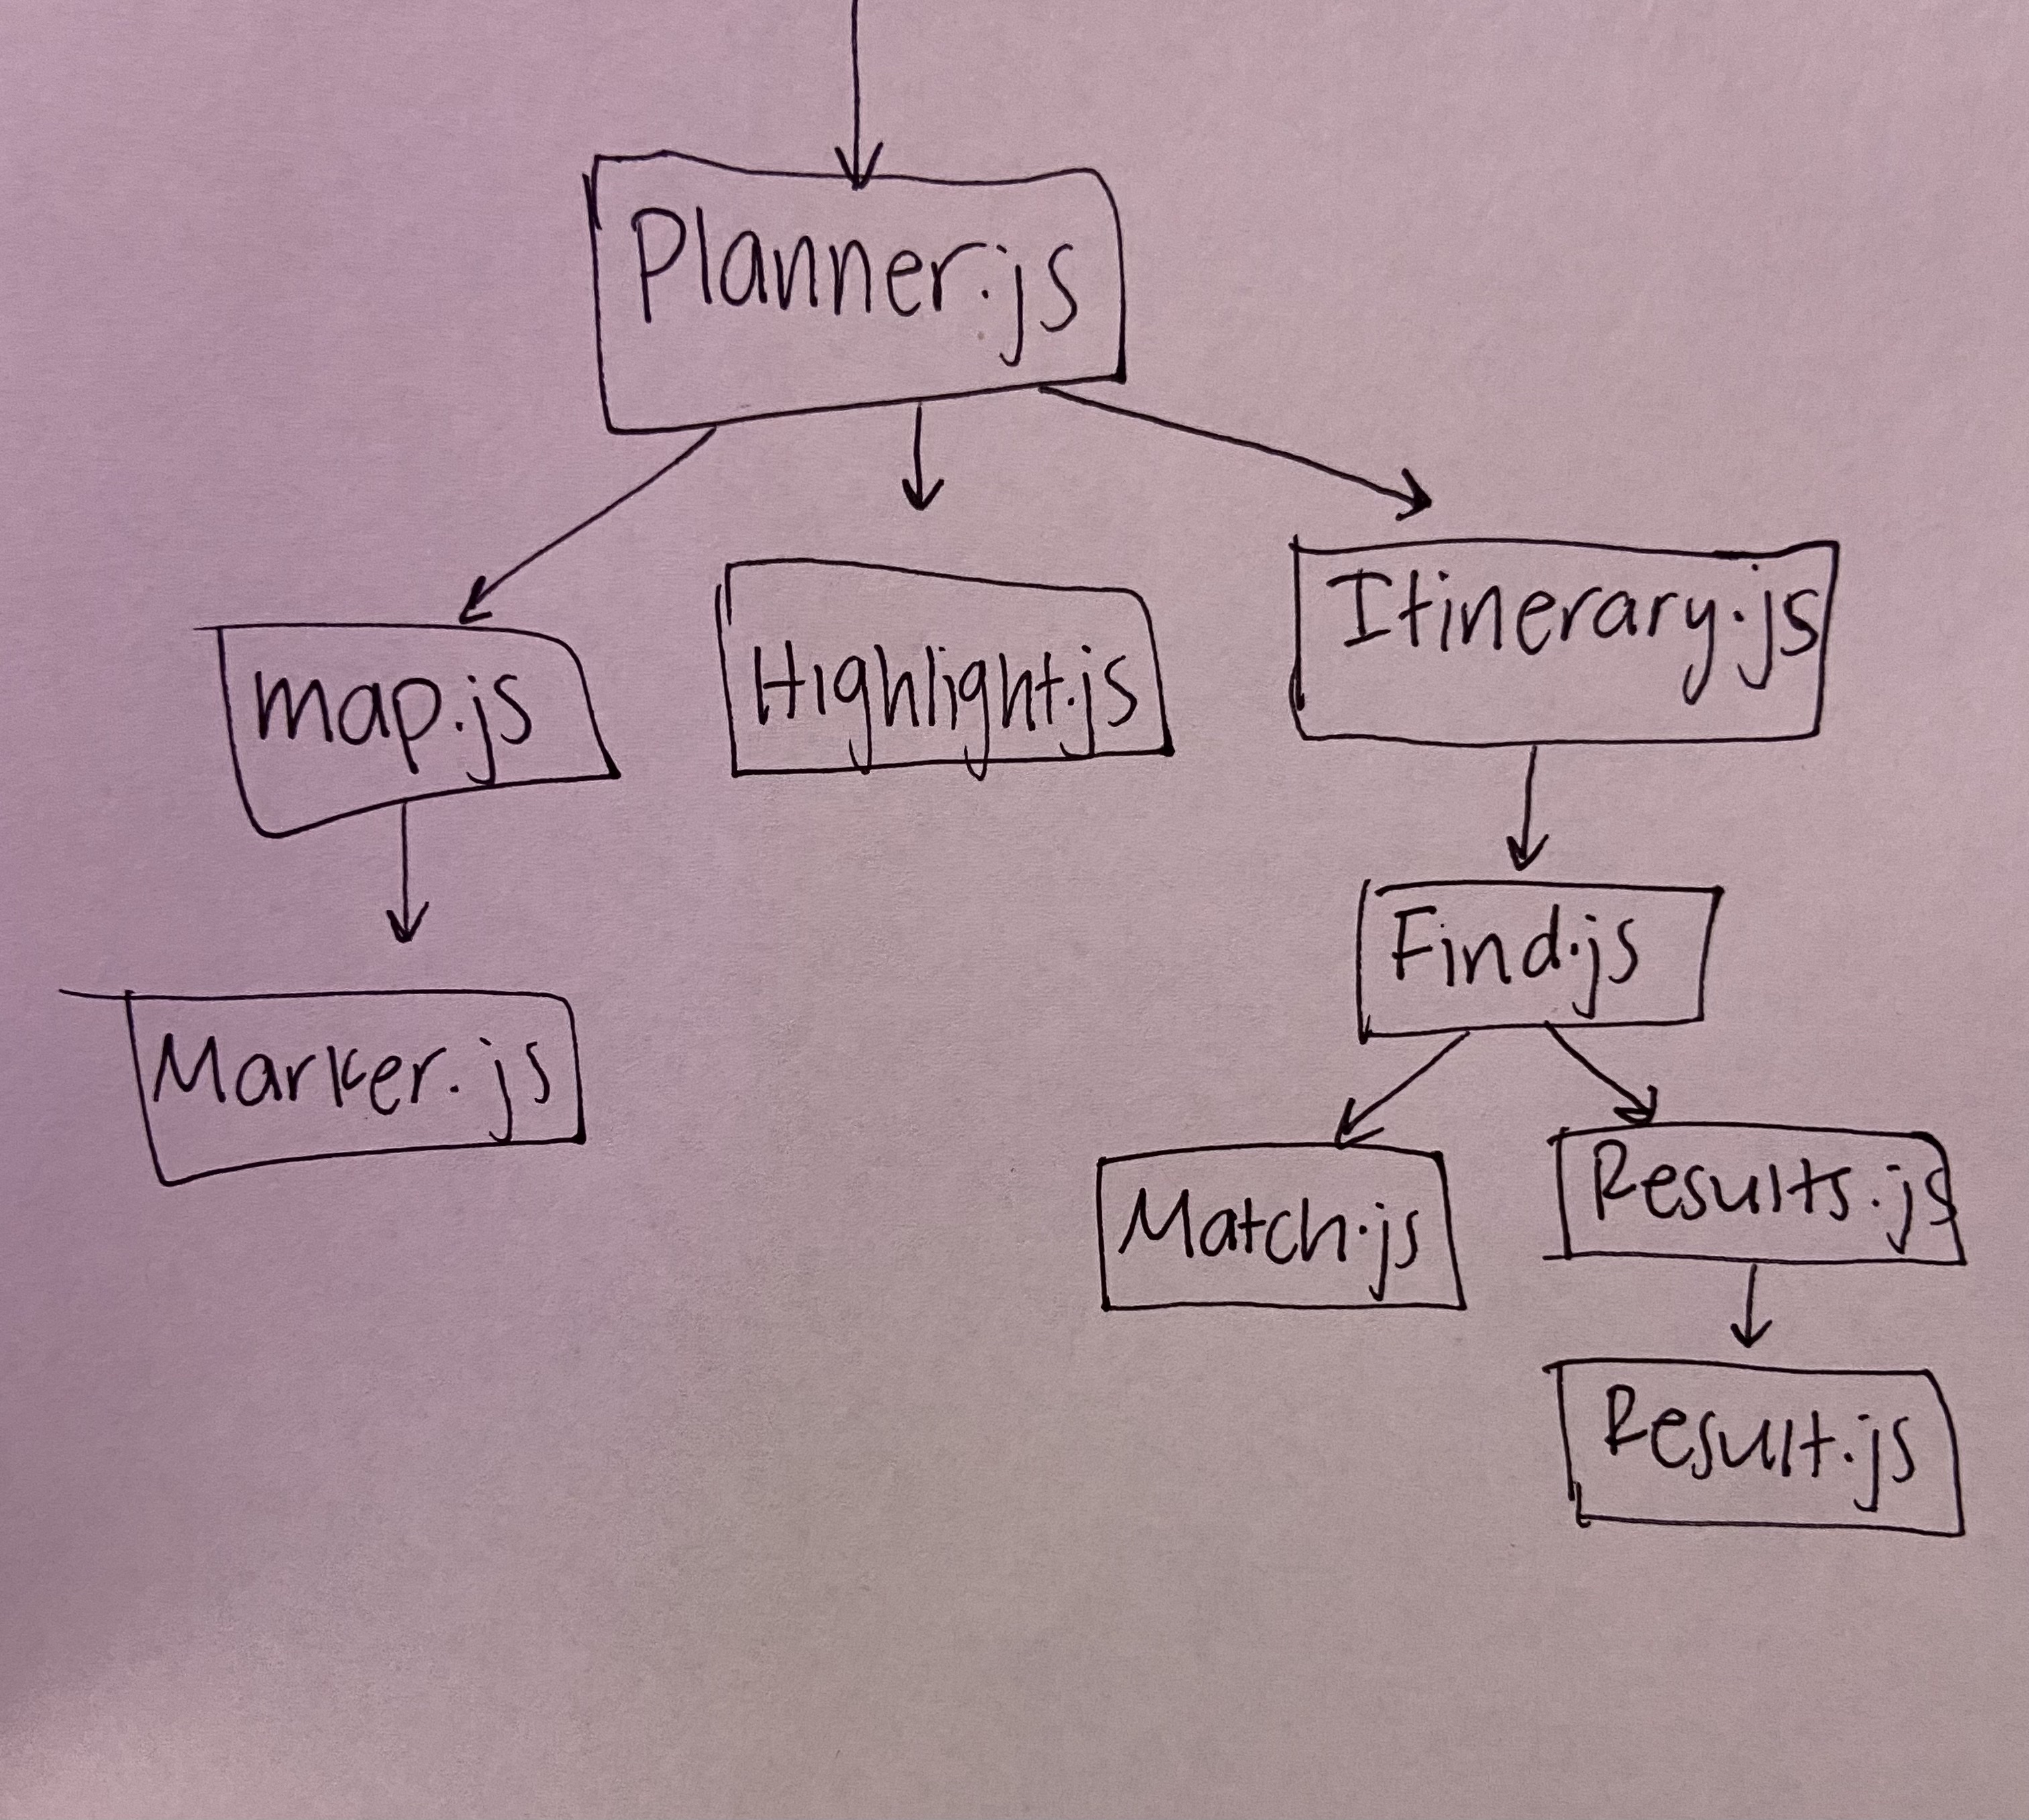 Planner.js
map.js
Highlight.js
Itinerary.js
Find.js
Marker.js
Match.js
Results.js
Result.js